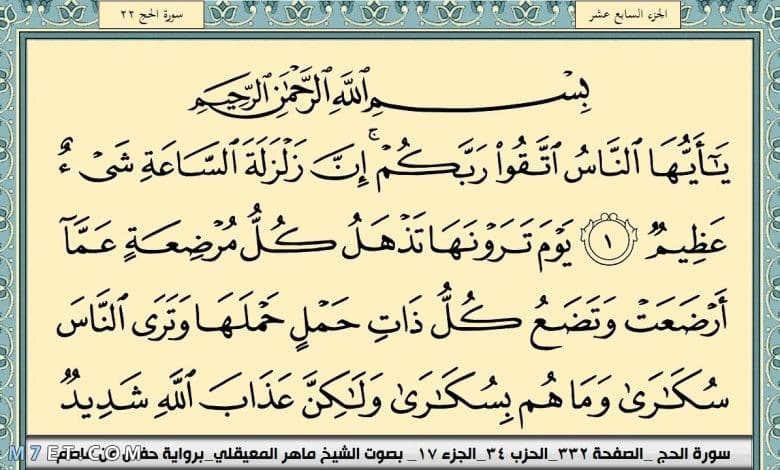 الجزء السابع عشر
سورة الحج ٢٢
بِسْمِ ٱللَّهِ ٱلرَّحْمَٰنِ ٱلرَّحِيمِ
يَٰٓأَيُّهَا ٱلنَّاسُ ٱتَّقُوا۟ رَبَّكُمْ ۚ إِنَّ زَلْزَلَةَ ٱلسَّاعَةِ شَىْءٌ
عَظِيمٌ ١ يَوْمَ تَرَوْنَهَا تَذْهَلُ كُلُّ مُرْضِعَةٍ عَمَّآ
أَرْضَعَتْ وَتَضَعُ كُلُّ ذَاتِ حَمْلٍ حَمْلَهَا وَتَرَى ٱلنَّاسَ
سُكَٰرَىٰ وَمَا هُم بِسُكَٰرَىٰ وَلَٰكِنَّ عَذَابَ ٱللَّهِ شَدِيدٌ
سورة الحج _الصفحة ٣٣٢_الحزب ٣٤_الجزء ١٧_ بصوت الشيخ ماهر المعيقلي_برواية حفص عن عاصم
M7ET.COM